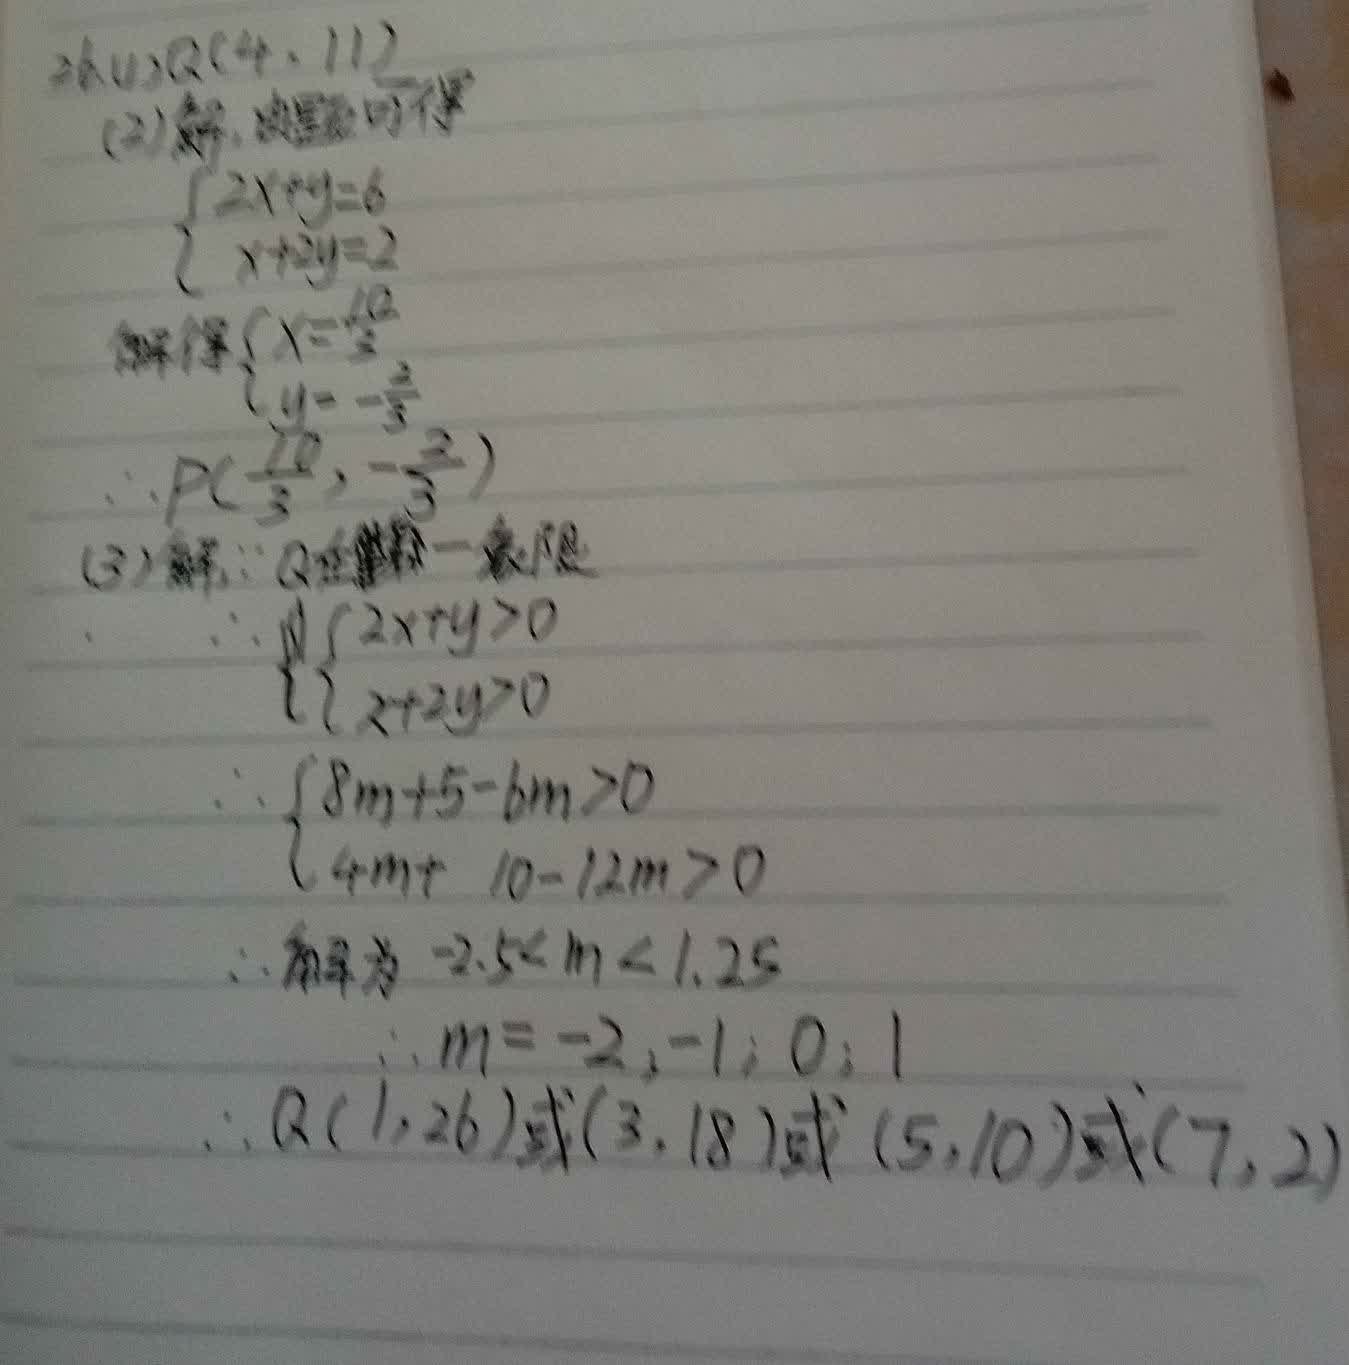 26.(1)Q(4,11)
(2)解:由题可得
{2x+y=6
x+2y=2
解得{x=10/3
y=-2/3
∴P(10/3,-2/3)
(3)解:∵Q在第一象限
∴{2x+y>0
x+2y>0
∴{8m+5-6m>0
4m+10-12m>0
∴解为-2.5<m<1.25
∴m=-2;-1;0;1
∴Q(1,26)或(3,18)或(5,10)或(7,2)